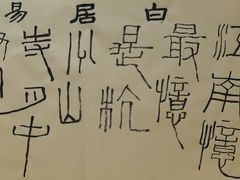 白居易
江南憶
最憶
是杭
州山
寺月中